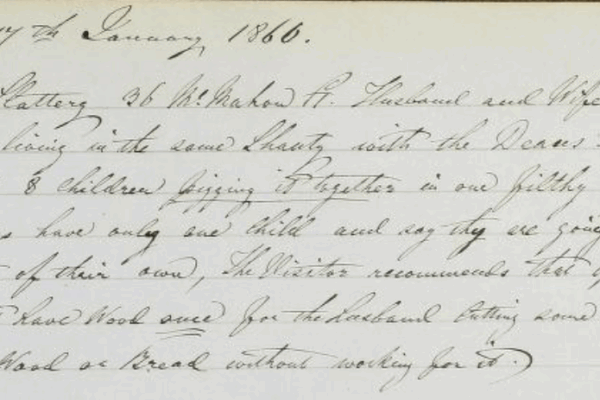 7th January 1866.
Slattery 36 McMahon St. Husband and Wife
living in the same Shanty with the Deans
8 children pigging it together in one filthy
have only one child and say thy are going
of their own, The Visitor recommends that
have Wood once for the Husband Cutting some
Wood or Bread without working for it.)